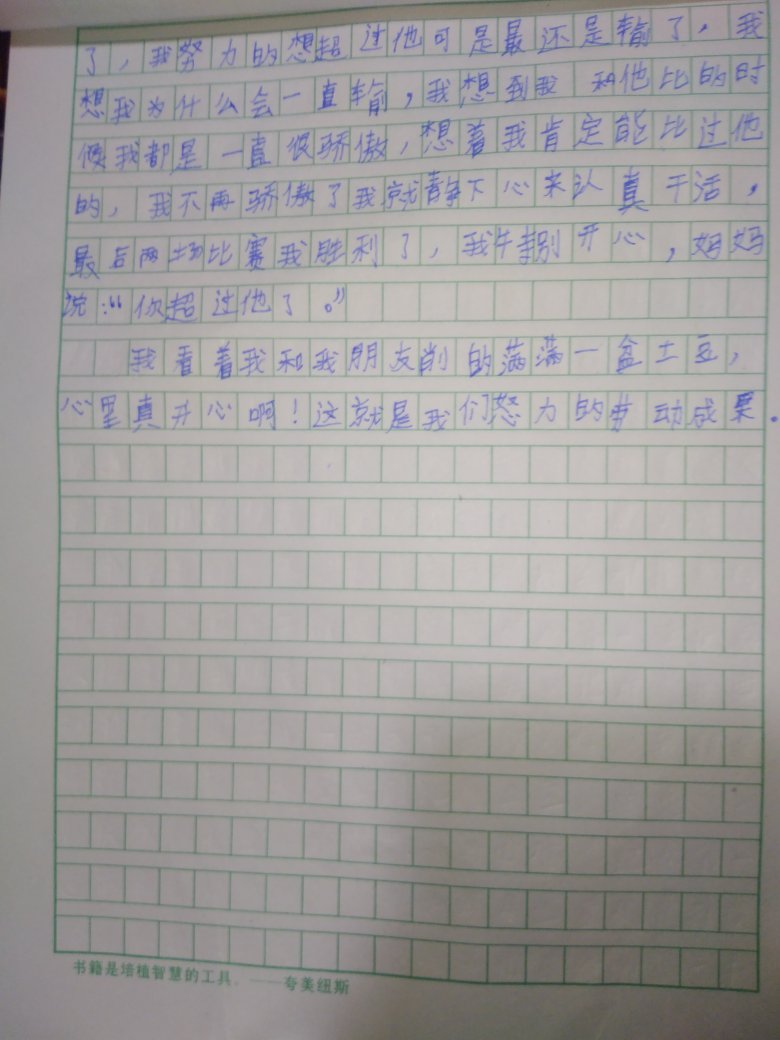 了，我努力的想超过他可是最还是输了，我
想我为什么会一直输，我想到我和他比的时
候我都是一直很骄傲，想着我肯定能比过他
的，我不再骄傲了我就静下心来认真干活，
最后两场比赛我胜利了，我特别开心，妈妈
说：“你超过他了。”
我看着我和我朋友削的满满一盆土豆，
心里真开心啊！这就是我们努力的劳动成果.
书籍是培植智慧的工具.——夸美纽斯